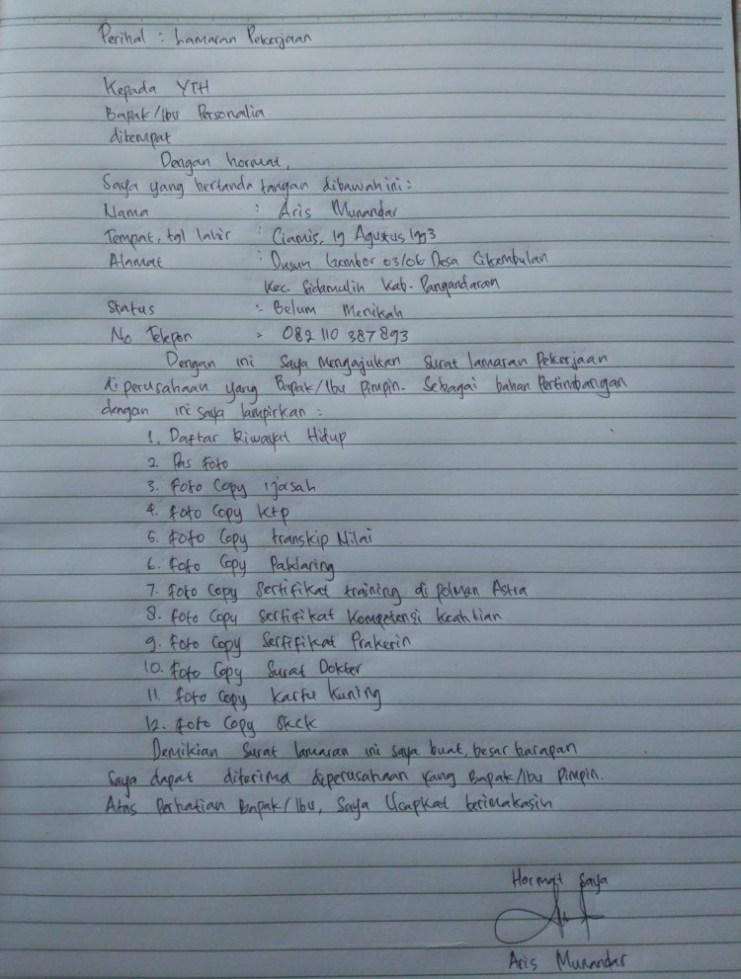 Perihal : Lamaran Pekerjaan
Kepada YTH
Bapak/Ibu Personalia
ditempat
Dengan hormat,
Saya yang bertanda tangan dibawah ini :
Nama : Aris Munandar
Tempat, tgl lahir : Ciamis, 19 Agustus 1993
Alamat : Dusun 03/06 Desa Cikembulan
Kec. Sidamulih Kab. Pangandaran
Status : Belum Menikah
No Telepon : 082 110 387 893
Dengan ini Saya mengajukan Surat lamaran Pekerjaan
di perusahaan yang Bapak/Ibu Pimpin. Sebagai bahan Pertimbangan
dengan ini saya lampirkan :
1. Daftar Riwayat Hidup
2. Pas Foto
3. Foto Copy ijasah
4. Foto Copy Ktp
5. Foto Copy transkip Nilai
6. Foto Copy Paklaring
7. Foto Copy Sertifikat training di polman Astra
8. Foto Copy Sertifikat Kompetensi keahlian
9. Foto Copy Sertifikat Prakerin
10. Foto Copy Surat Dokter
11. Foto Copy Kartu Kuning
12. Foto Copy Skck
Demikian Surat lamaran ini saya buat, besar harapan
Saya dapat diterima diperusahaan yang Bapak/Ibu Pimpin.
Atas Perhatian Bapak/Ibu, Saya Ucapkat terimakasih
Hormat Saya
Aris Munandar